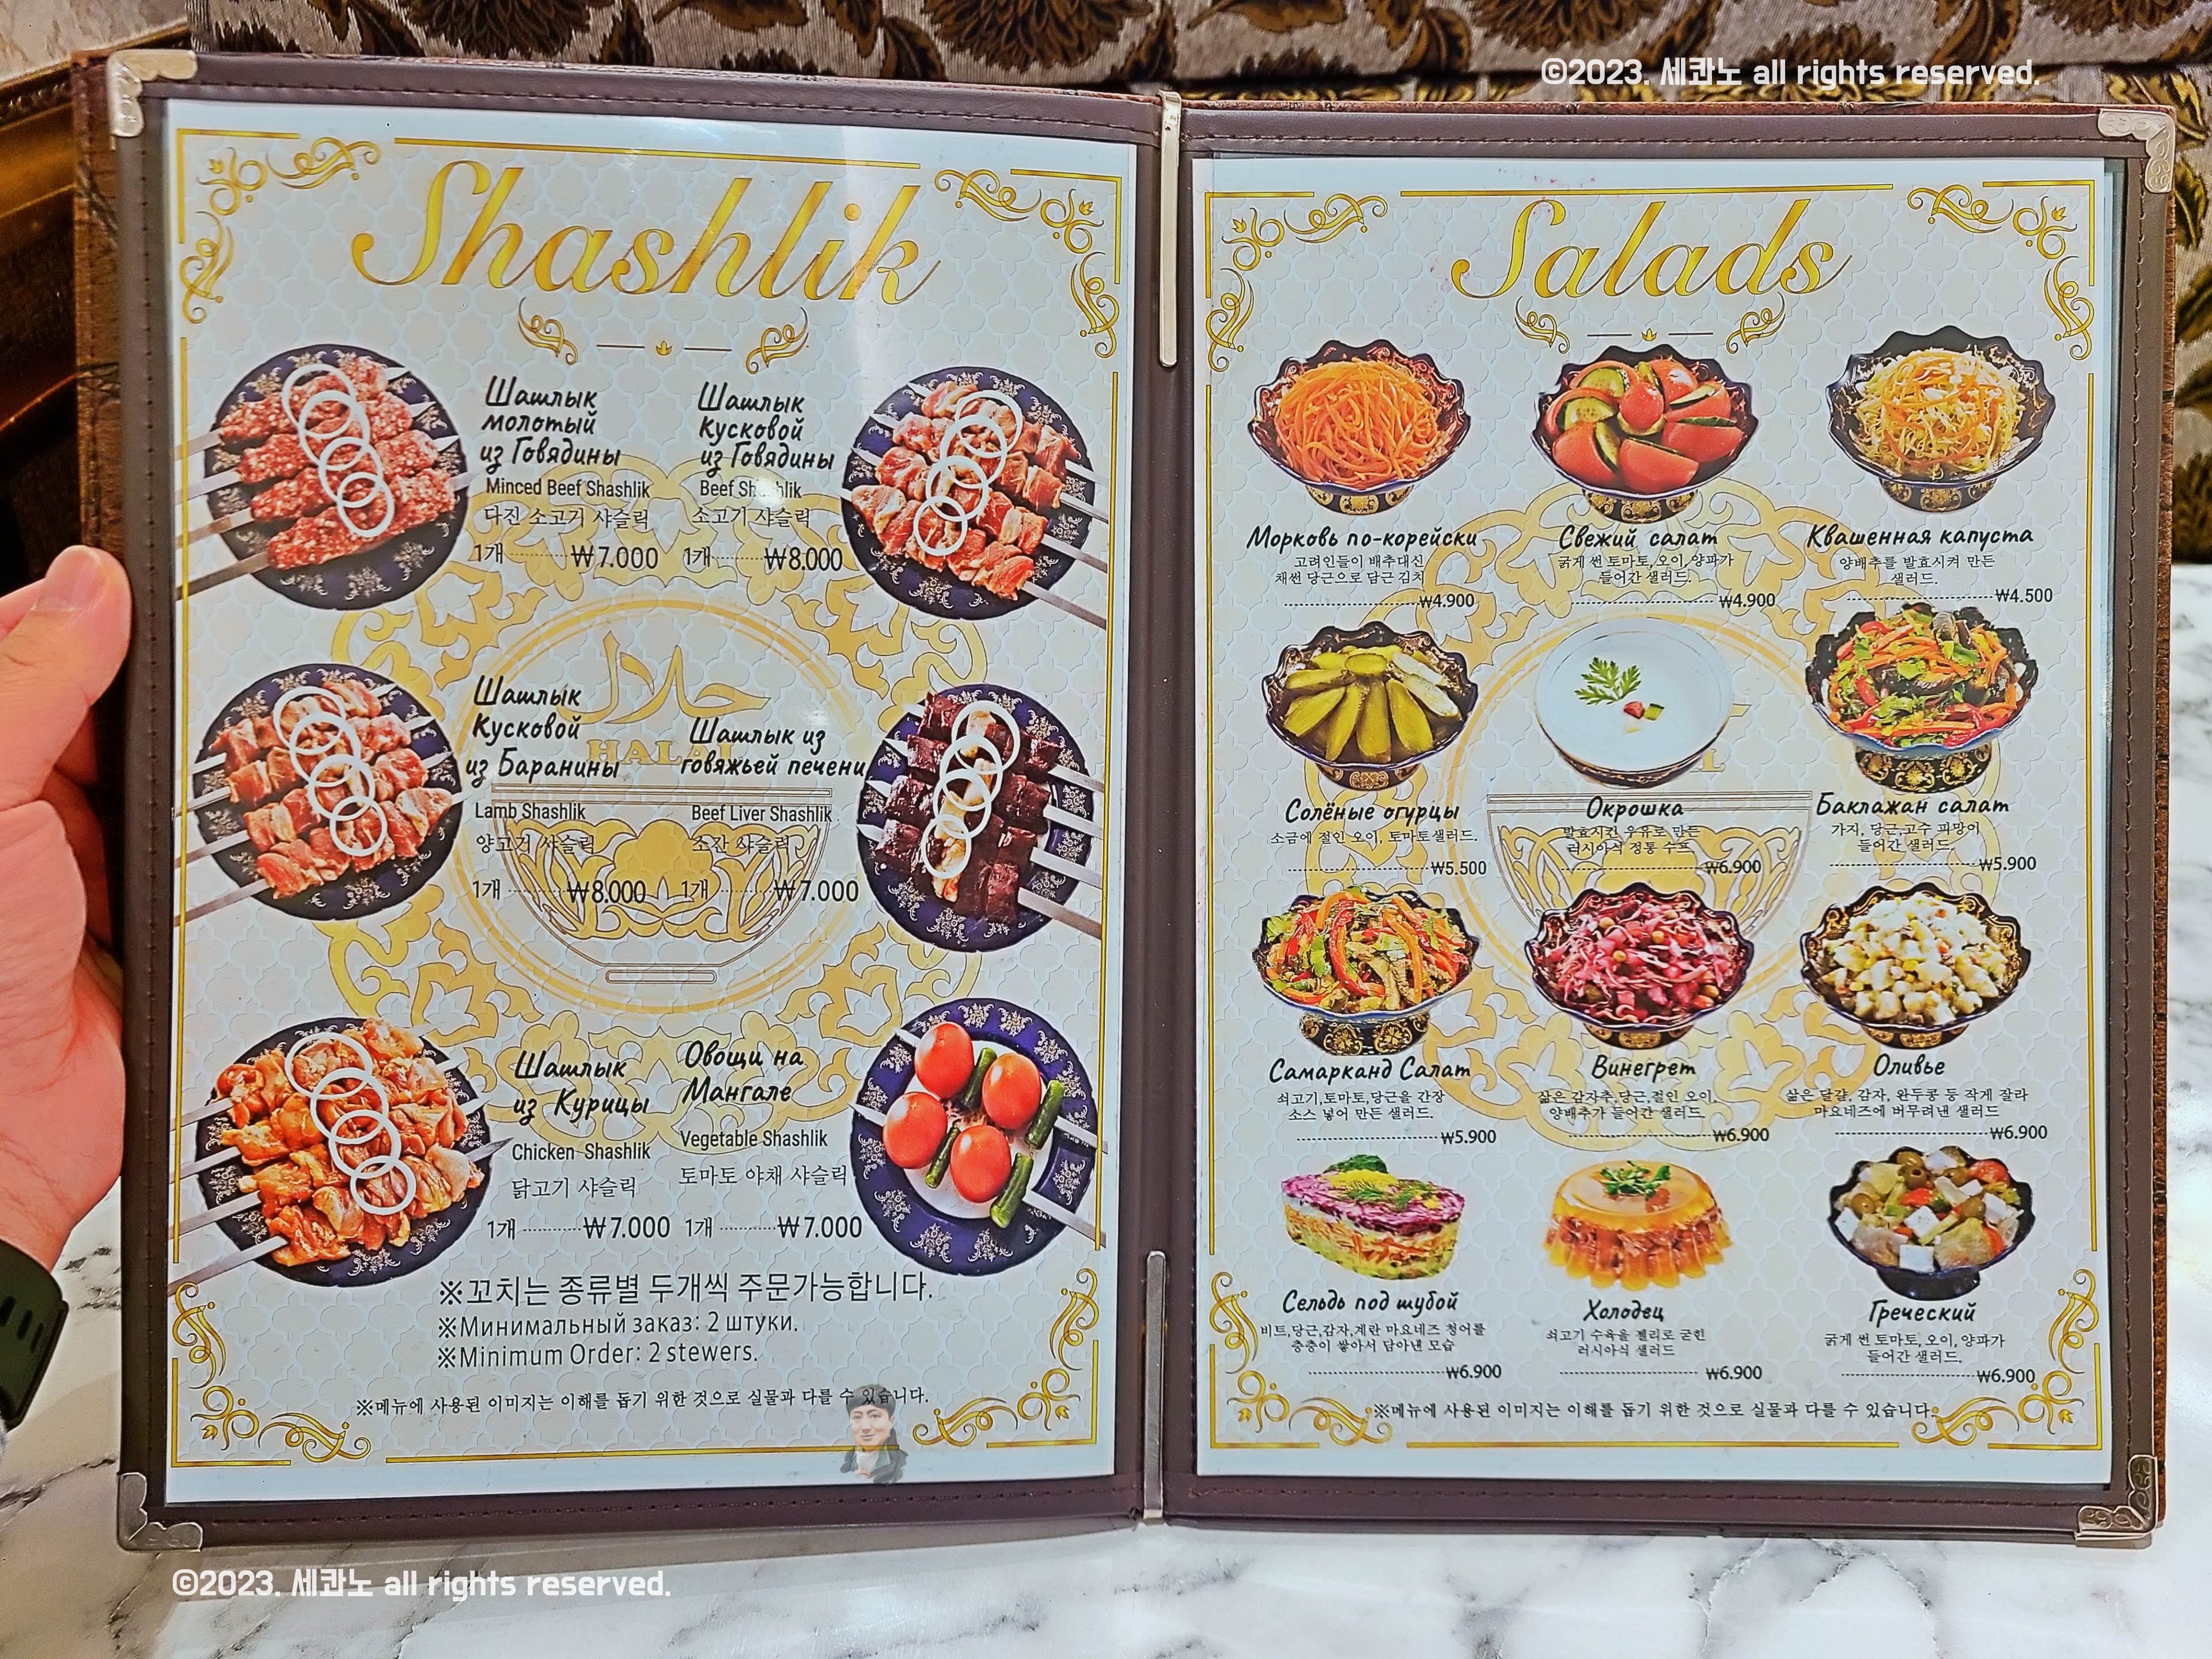 ©2023. 세콴노 all rights reserved.
Shashlik
Шашлык
молотый
из Говядины
Minced Beef Shashlik
다진 소고기 샤슬릭
1개 ₩7.000
Шашлык
Кусковой
из Говядины
Beef Shashlik
소고기 샤슬릭
1개 ₩8.000
حلال
HALAL
Шашлык
Кусковой
из Баранины
Lamb Shashlik
양고기 샤슬릭
1개 ₩8.000
Шашлык из
говяжьей печени
Beef Liver Shashlik
소간 샤슬릭
1개 ₩7.000
Шашлык
из Курицы
Chicken Shashlik
닭고기 샤슬릭
1개 ₩7.000
Овощи на
Мангале
Vegetable Shashlik
토마토 야채 샤슬릭
1개 ₩7.000
※꼬치는 종류별 두개씩 주문가능합니다.
※Минимальный заказ: 2 штуки.
※Minimum Order: 2 stewers.
※메뉴에 사용된 이미지는 이해를 돕기 위한 것으로 실물과 다를 수 있습니다.
Salads
Морковь по-корейски
고려인들이 배추대신
채썬 당근으로 담근 김치
₩4.900
Свежий салат
굵게 썬 토마토, 오이, 양파가
들어간 샐러드.
₩4.900
Квашенная капуста
양배추를 발효시켜 만든
샐러드.
₩4.500
Солёные огурцы
소금에 절인 오이, 토마토샐러드.
₩5.500
Окрошка
발효시킨 우유로 만든
러시아식 정통 수프
₩6.900
Баклажан салат
가지, 당근,고수 피망이
들어간 샐러드.
₩5.900
Самарканд Салат
쇠고기,토마토,당근을 간장
소스 넣어 만든 샐러드.
₩5.900
Винегрет
삶은 감자추,당근,절인 오이,
양배추가 들어간 샐러드.
₩6.900
Оливье
삶은 달걀, 감자, 완두콩 등 작게 잘라
마요네즈에 버무려낸 샐러드
₩6.900
Сельдь под шубой
비트,당근,감자,계란 마요네즈 청어를
층층이 쌓아서 담아낸 모습
₩6.900
Холодец
쇠고기 수육을 젤리로 굳힌
러시아식 샐러드
₩6.900
Греческий
굵게 썬 토마토, 오이, 양파가
들어간 샐러드.
₩6.900
※메뉴에 사용된 이미지는 이해를 돕기 위한 것으로 실물과 다를 수 있습니다.
©2023. 세콴노 all rights reserved.